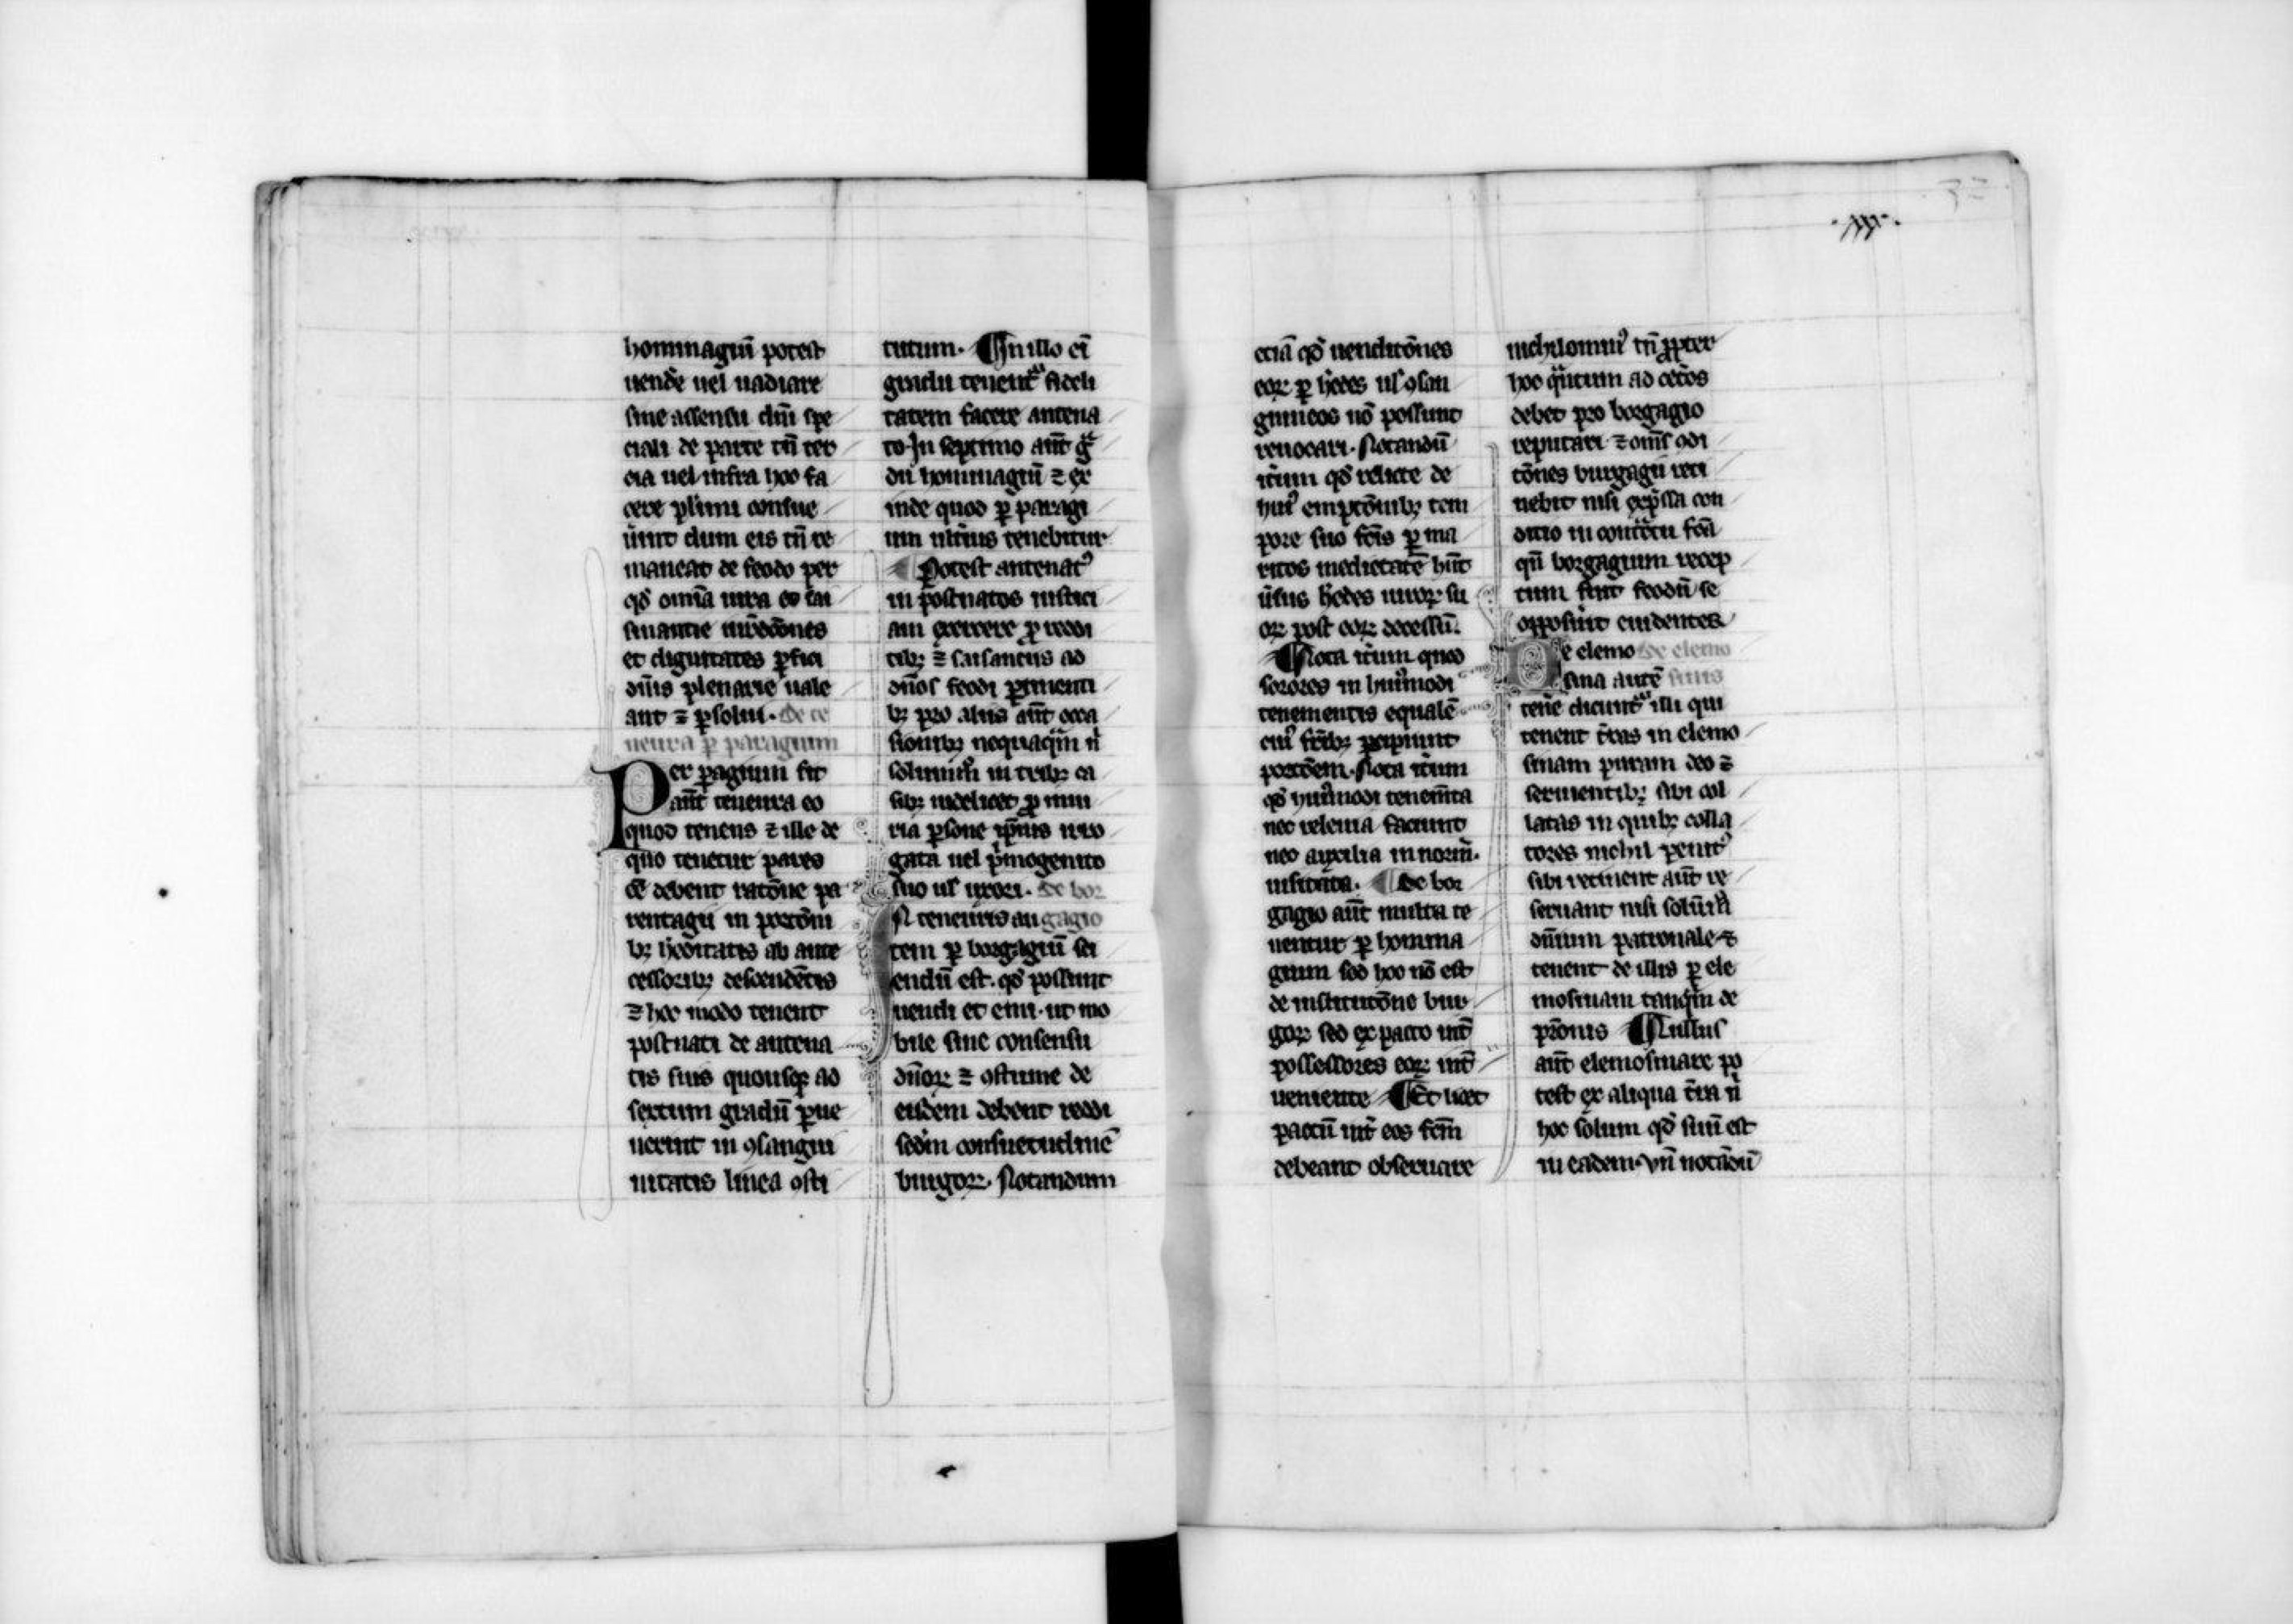 hommagiū potest
uendē uel uadiare
sine assensu dn̄i spe
ciali de parte tn̄ ter
cia uel infra hoc fa
cere plimi consue
ūint dum eis tn̄ re
maneat de feodo per
qd̄ omīa iura eo
et dignitates ꝑfici
dn̄is plenarie uale
ant ⁊ ꝑsolui. de te
neura ꝑ paragium
Per ꝑagium fit
aūt teneura eo
quod tenens ⁊ ille de
quo tenetur pares
ēē debent ratōne pa
rentagii in portōni
bꝫ hēditatis ab ante
cessoribꝫ descendētis
⁊ hoc modo tenent
postnati de antena
tis suis quousqꝫ ad
sextum gradū ꝑue
nerint in ꝯsangui
nitatis linea ꝯsti
tutum. ¶ In illo eī
gradu tenent᷑ fideli
tatem facere antena
to. In septimo aūt g̃
du hommagiū ⁊ ex
inde quod ꝑ paragi
um ulteriꝰ tenebitur
¶ Potest antenatꝰ
in postnatos iustici
am exercere ꝓ reddi
tibꝫ ⁊ faisanciis ad
dn̄os feodi ꝑtinenti
bꝫ pro aliis aūt occa
sionibꝫ nequaq̃m ň
solūmō in tribꝫ ca
sibꝫ uidelicet ꝓ iniu
ria ꝑsone ip̄ius irro
gata uel pͥmogenito
suo ul' uxori. de bor
gagio
IN teneuris au
tem ꝑ borgagiū sci
endū est. qd̄ possunt
uendi et emi. ut mo
bile sine consensu
dn̄oꝝ ⁊ ꝯstume de
eisdem debent reddi
scd̄m consuetudinē
burgoꝝ. Notandum
.xxx.
32
eciā qd̄ uenditōnes
eoꝝ ꝑ hēdes ul' ꝯsan
guineos nō possunt
reuocari. Notandū
itūm qd̄ relicte de
huiꝰ emptōnibꝫ tem
pore suo fc̄is ꝑ ma
ritos medietatē hn̄t
ūsus hēdes uiroꝝ su
oꝝ post eoꝝ decessū.
¶ Nota itūm quod
sorores in huꝰmodi
tenementis equalē
cū frībꝫ ꝑcipiunt
portōem. Nota itūm
qd̄ huꝰmodi tenem̄ta
nec releuia faciunt
nec auxilia in norm̄.
usitata. ¶ De bor
gagio aūt multa te
nentur ꝑ homma
gium sed hoc nō est
de institutōne bur
goꝝ sed ex pacto int̄
possessores eoꝝ int̄
ueniente ¶ Et licet
pactū int̄ eos fc̄m
debeant obseruare
nichilominꝰ tn̄ ꝓpter
hoc q̃ntum ad cet̄os
debet pro borgagio
reputari ⁊ om̄s ꝯdi
tōnes burgagii reti
nebit nisi exp̄ssa con
dicio in cont̃ctu fc̄a
qn̄ borgagium recep
tum fuit feodū se
opposūit euidenter
De elemo de elemo
sina autē sinis
tenē dicunt᷑ illi qui
tenent t̄ras in elemo
sinam puram deo ⁊
seruientibꝫ sibi col
latas in quibꝫ colla
tores nichil penitꝰ
sibi retinent aūt re
seruant nisi solūmō
dn̄ium patronale ⁊
tenent de illis ꝑ ele
mosinam tanq̃m de
pr̄onis ¶ Nullus
aūt elemosinare po
test ex aliqua t̄ra ň
hoc solum qd̄ suū est
in eadem. vn̄ notādū